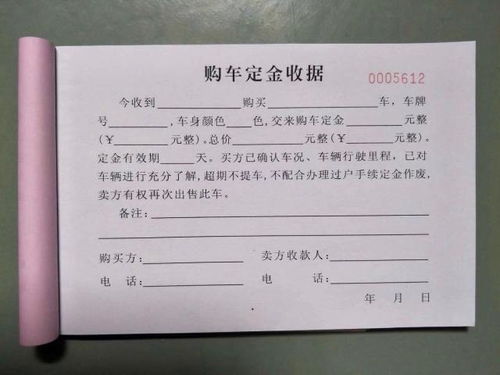 购车定金收据
0005612
今收到__________购买__________车,车牌
号__________,车身颜色____色,交来购车定金________元整
(¥________元整)。总价__________元整(¥________元整)。
定金有效期____天。买方已确认车况、车辆行驶里程,已对
车辆进行充分了解,超期不提车,不配合办理过户手续定金作废,
卖方有权再次出售此车。
备注:
购买方:__________ 卖方收款人:__________
电 话:__________ 电 话:__________
年 月 日